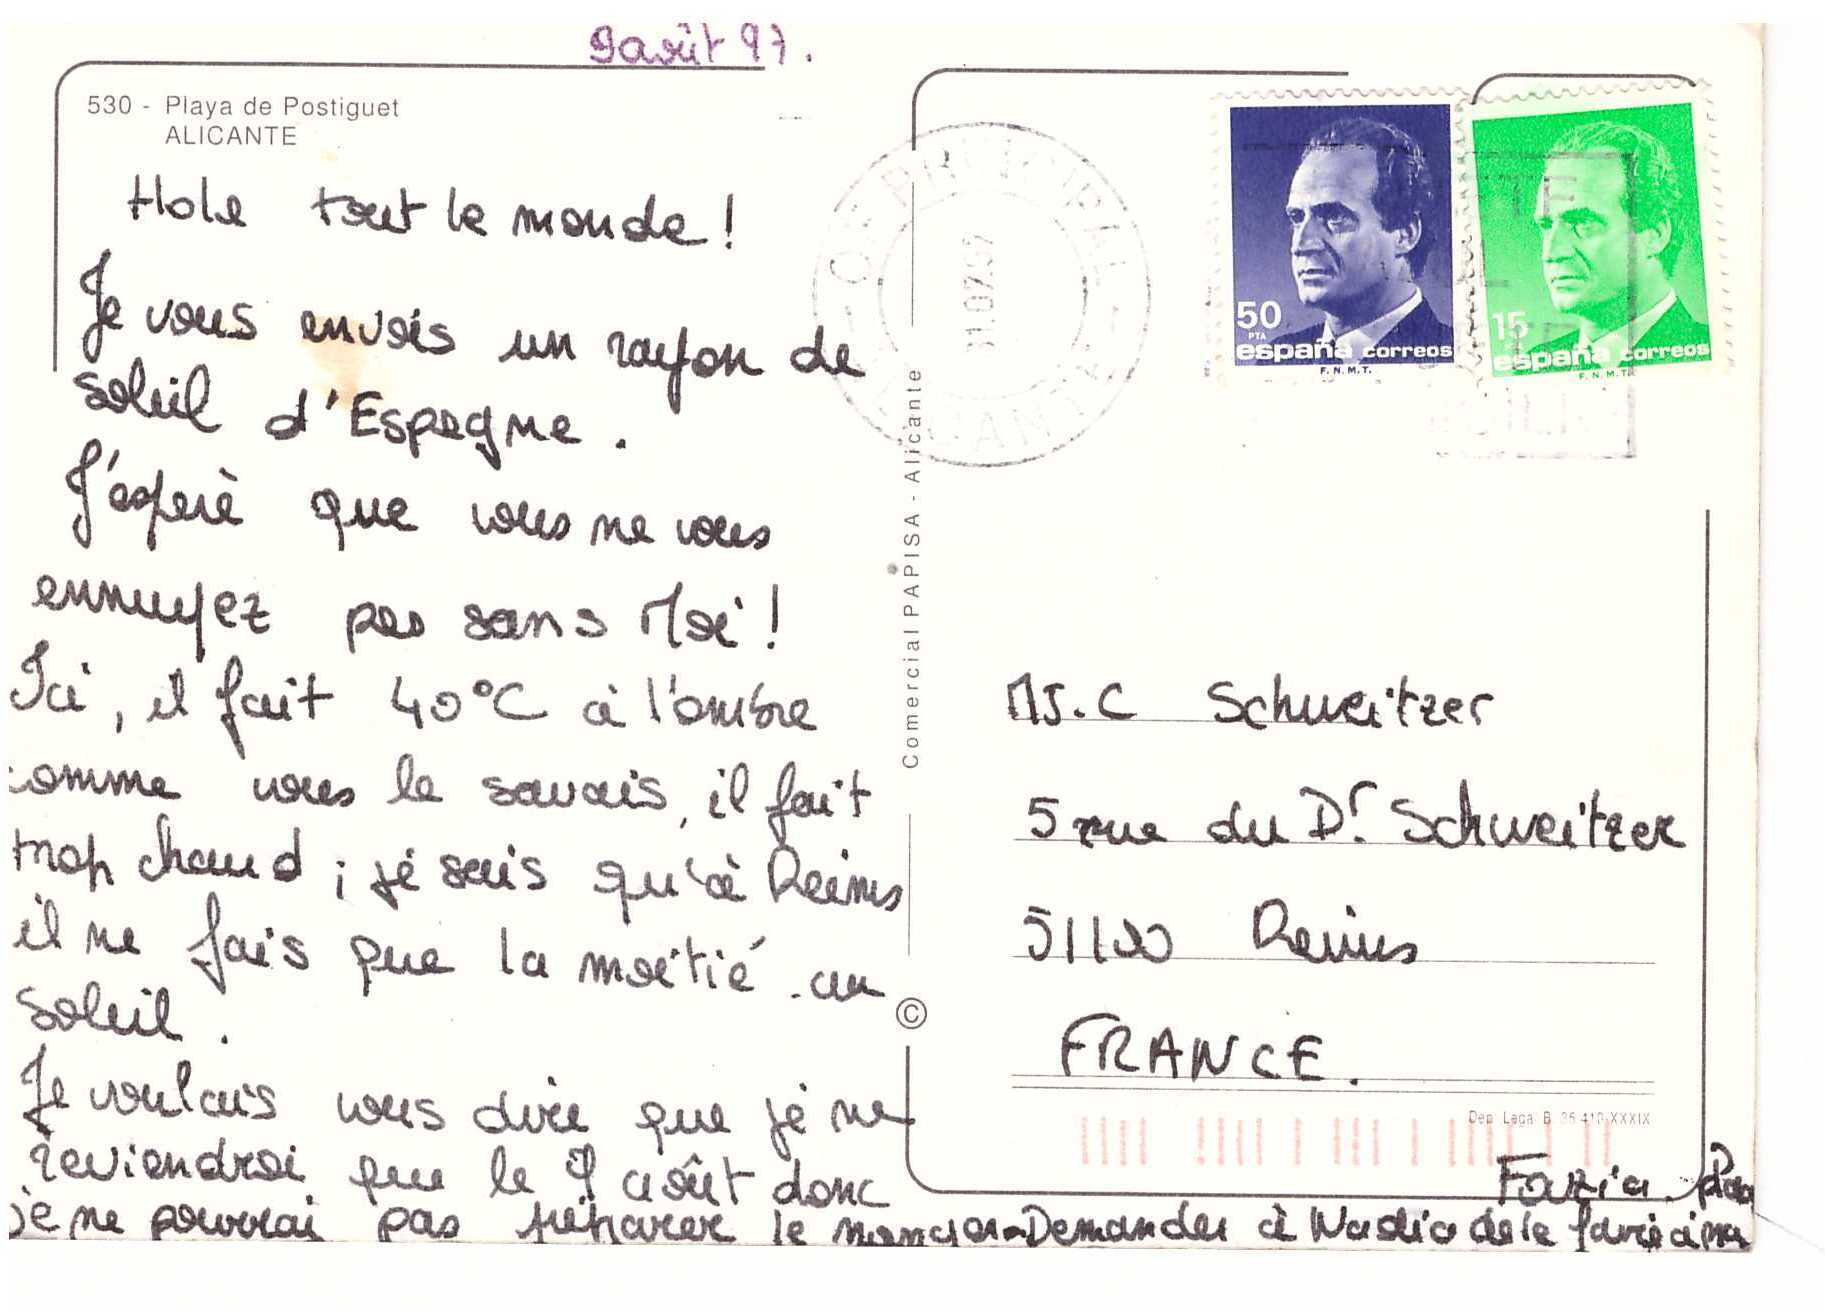 9 août 97.
530 - Playa de Postiguet
ALICANTE
Hola tout le monde !
Je vous envois un rayon de
soleil d'Espagne.
J'espère que vous ne vous
ennuyez pas sans Moi !
Ici, il fait 40°C à l'ombre
comme vous le savais, il fait
trop chaud ; je sais qu'à Reims
il ne fais que la moitié au
soleil.
Je voulais vous dire que je ne
reviendrai que le 9 août donc
je ne pourrai pas préparer le
Demander à Nadia de le faire
Fazia.
Comercial PAPISA - Alicante
©
OF. PRINCIPAL
ALICANTE
31.07.97
50
PTA
españa correos
F.N.M.T.
15
españa correos
F.N.M.T.
MJ.C Schweitzer
5 rue du Dr. Schweitzer
51100 Reims
FRANCE.